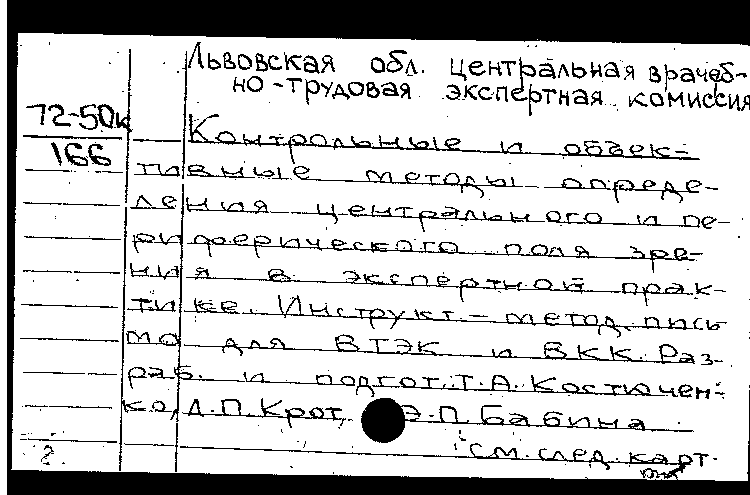 Львовская обл. центральная врачеб-
но-трудовая экспертная комиссия
72-50к
166
Контрольные и объек-
тивные методы опреде-
ления центрального и пе-
риферического поля зре-
ния в экспертной прак-
тике. Инструкт.-метод. пись
мо для ВТЭК и ВКК. Раз-
раб. и подгот. Т.А. Костючен-
ко, Д.П. Крот, Э.П. Бабина
см. след. карт.
2